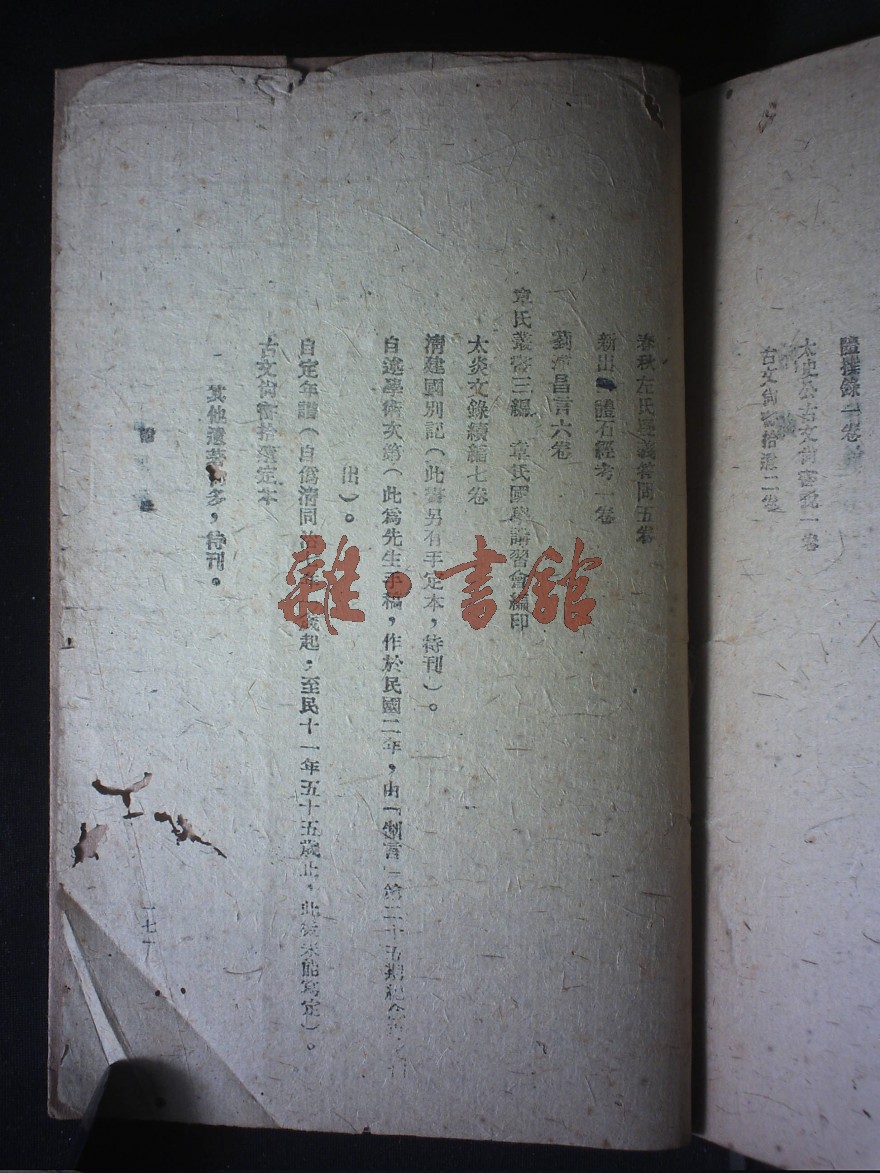 體撰錄一卷
太史公古文尚書說一卷
古文尚書拾遺二卷
春秋左氏疑義答問五卷
新出 體石經考一卷
劉 昌言六卷
章氏叢書三編 章氏國學講習會編印
太炎文錄續編七卷
清建國別記(此書另有手定本,待刊)。
自述學術次第(此為先生手稿,作於民國二年,由「制言」第二十五期紀念
出)。
自定年譜(自僞清同治 歲起,至民十一年五十五歲止,此後未能寫定)。
古文尚書拾遺定本
其他遺著尚多,待刊。
一七
雜·書館